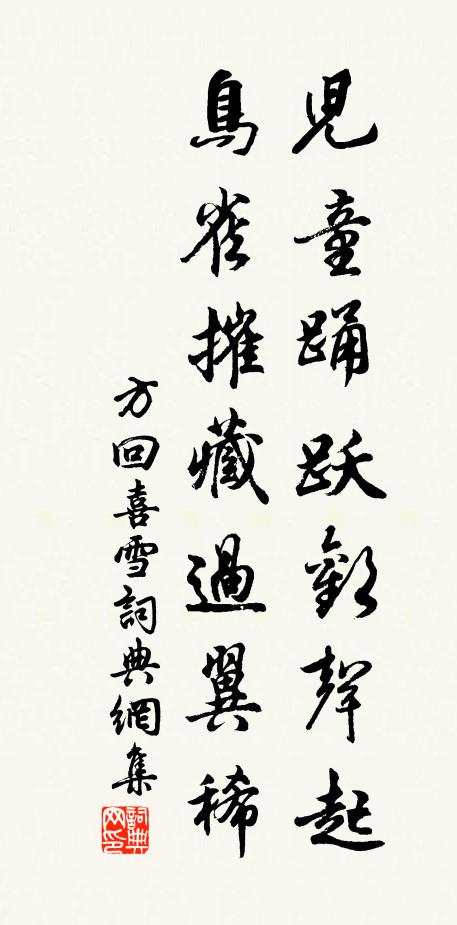 兒童踊跃歡聲起
鳥雀摧藏過翼稀
方回喜雪詞典網集
詞典网印